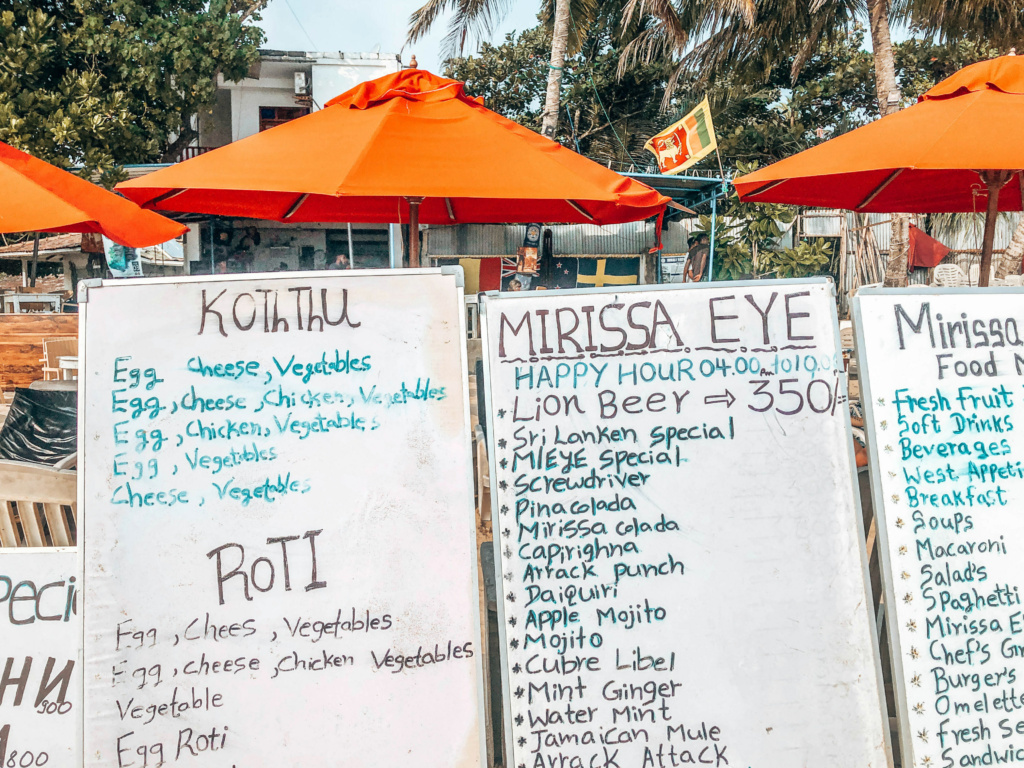 PECI
НИ
900
800
KOThThU
Egg Cheese, Vegetables
Egg, Cheese, Chicken, Vegetables
Egg, Chicken, Vegetables
Egg, Vegetables
Cheese, Vegetables
ROTI
Egg, Chees, Vegetables
Egg, cheese, Chicken Vegetables
Vegetable
Egg Roti
MIRISSA EYE
HAPPY HOUR 04.00 Pm to 10.0
* Lion Beer ⇨ 350/=
* Sri Lanken Special
* M/EYE Special
* Screwdriver
* Pinacolada
* Mirissa colada
* Capirighna
* Arrack punch
* Daiquiri
* Apple Mojito
* Mojito
* Cubre Libel
* Mint Ginger
* Water Mint
* Jamaican Mule
* Arrack Attack
Mirissa
Food
* Fresh Fruit
* Soft Drinks
* Beverages
* West Appeti
* Breakfast
* Soups
* Macaroni
* Salad's
* Spaghetti
* Mirissa E
* Chef's Gr
* Burger's
* Omelette
* Fresh Se
* Sandwic